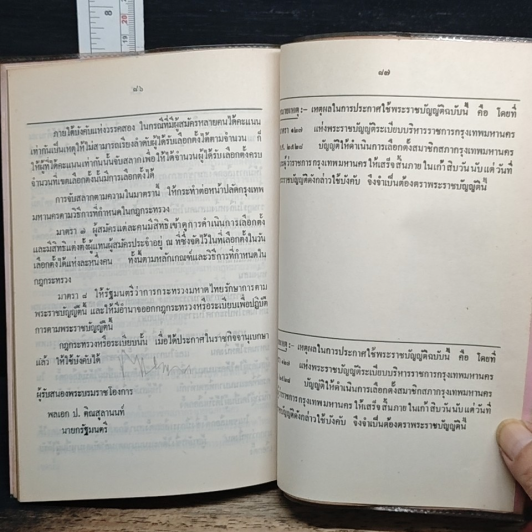 ๘๖
ภายใต้บังคับแห่งวรรคสอง ในกรณีที่มีผู้สมัครหลายคนได้คะแนน
เท่ากันเป็นเหตุให้ไม่สามารถเรียงลำดับผู้ได้รับเลือกตั้งได้ตามจำนวน ก็
ให้ผู้ที่ได้คะแนนเท่ากันนั้นจับสลากเพื่อให้ได้จำนวนผู้ได้รับเลือกตั้งครบ
จำนวนที่เขตเลือกตั้งนั้นมีการเลือกตั้งได้
การจับสลากตามความในมาตรานี้ ให้กระทำต่อหน้าปลัดกรุงเทพ
มหานครตามวิธีการที่กำหนดในกฎกระทรวง
มาตรา ๗ ผู้สมัครแต่ละคนมีสิทธิเข้าดูการดำเนินการเลือกตั้ง
และมีสิทธิแต่งตั้งผู้แทนผู้สมัครประจำอยู่ ณ ที่ซึ่งจัดไว้ในที่เลือกตั้งในวัน
เลือกตั้งได้แห่งละหนึ่งคน ทั้งนี้ตามหลักเกณฑ์และวิธีการที่กำหนดใน
กฎกระทรวง
มาตรา ๘ ให้รัฐมนตรีว่าการกระทรวงมหาดไทยรักษาการตาม
พระราชบัญญัตินี้ และให้มีอำนาจออกกฎกระทรวงหรือระเบียบเพื่อปฏิบัติ
การตามพระราชบัญญัตินี้
กฎกระทรวงหรือระเบียบนั้น เมื่อได้ประกาศในราชกิจจานุเบกษา
แล้ว ให้ใช้บังคับได้
ผู้รับสนองพระบรมราชโองการ
พลเอก ป. ติณสูลานนท์
นายกรัฐมนตรี
๘๗
หมายเหตุ :- เหตุผลในการประกาศใช้พระราชบัญญัติฉบับนี้ คือ โดยที่
แห่งพระราชบัญญัติระเบียบบริหารราชการกรุงเทพมหานคร
บัญญัติให้ดำเนินการเลือกตั้งสมาชิกสภากรุงเทพมหานคร
ผู้ว่าราชการกรุงเทพมหานคร ให้เสร็จสิ้นภายในเก้าสิบวันนับแต่วันที่
พระราชบัญญัติดังกล่าวใช้บังคับ จึงจำเป็นต้องตราพระราชบัญญัตินี้
:- เหตุผลในการประกาศใช้พระราชบัญญัติฉบับนี้ คือ โดยที่
แห่งพระราชบัญญัติระเบียบบริหารราชการกรุงเทพมหานคร
บัญญัติให้ดำเนินการเลือกตั้งสมาชิกสภากรุงเทพมหานคร
ราชการกรุงเทพมหานคร ให้เสร็จสิ้นภายในเก้าสิบวันนับแต่วันที่
บัญญัติดังกล่าวใช้บังคับ จึงจำเป็นต้องตราพระราชบัญญัตินี้